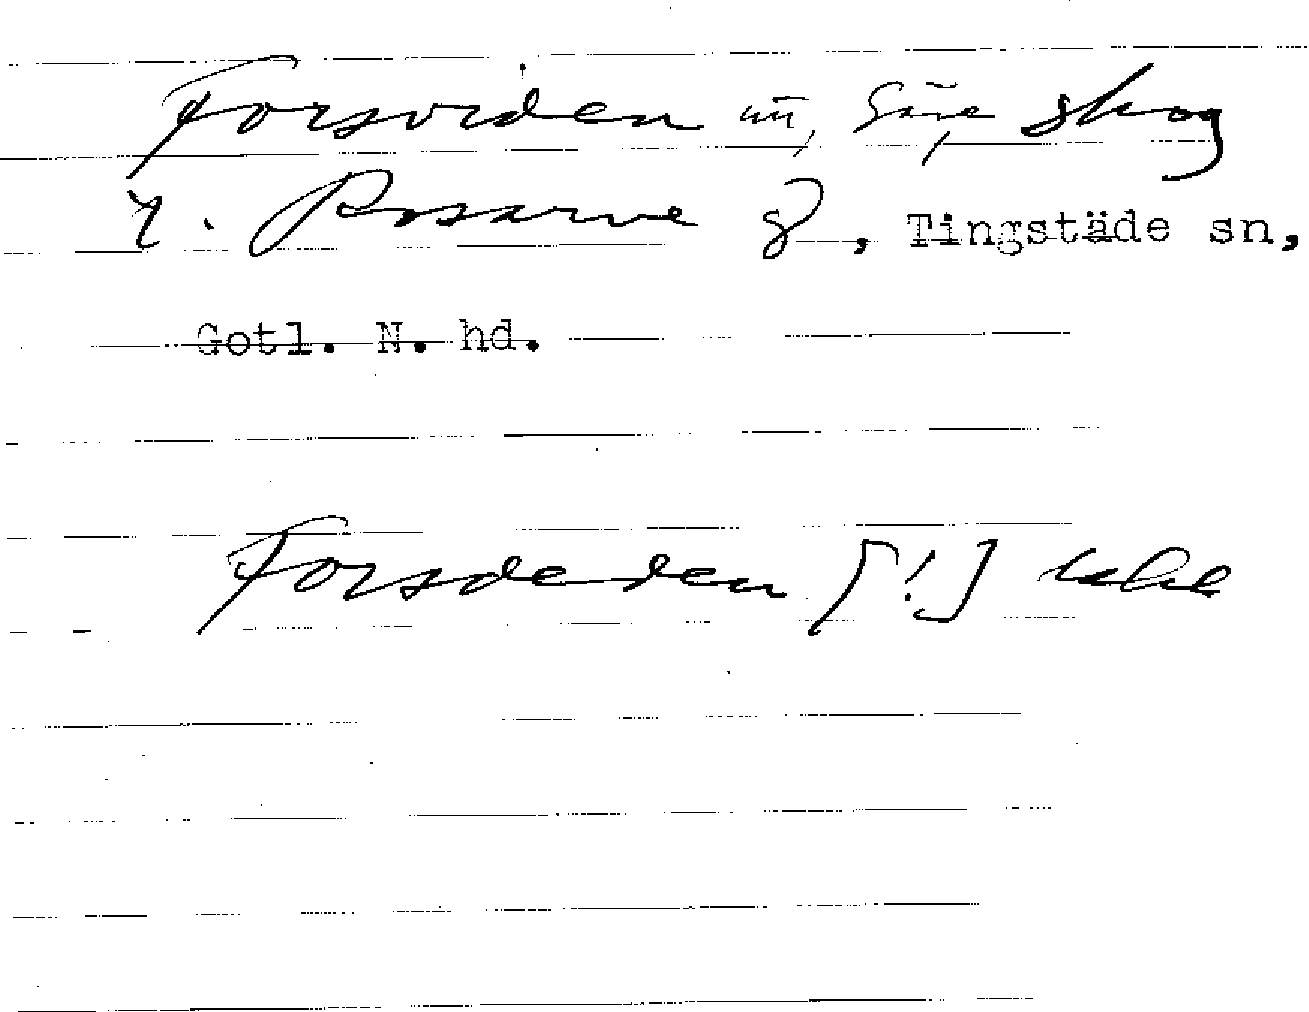 Forsviden
skog
t. Rosarve g, Tingstäde sn,
Gotl. N. hd.
Forsdeden [!] uhe